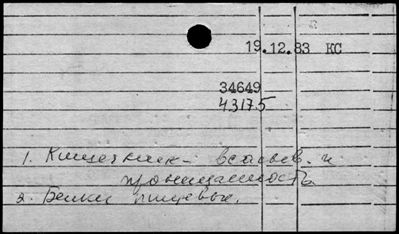 19.12.83 КС
34649
43175
1. Кишечник - всасыв. и
проницаемость
2. Белки пищевые.